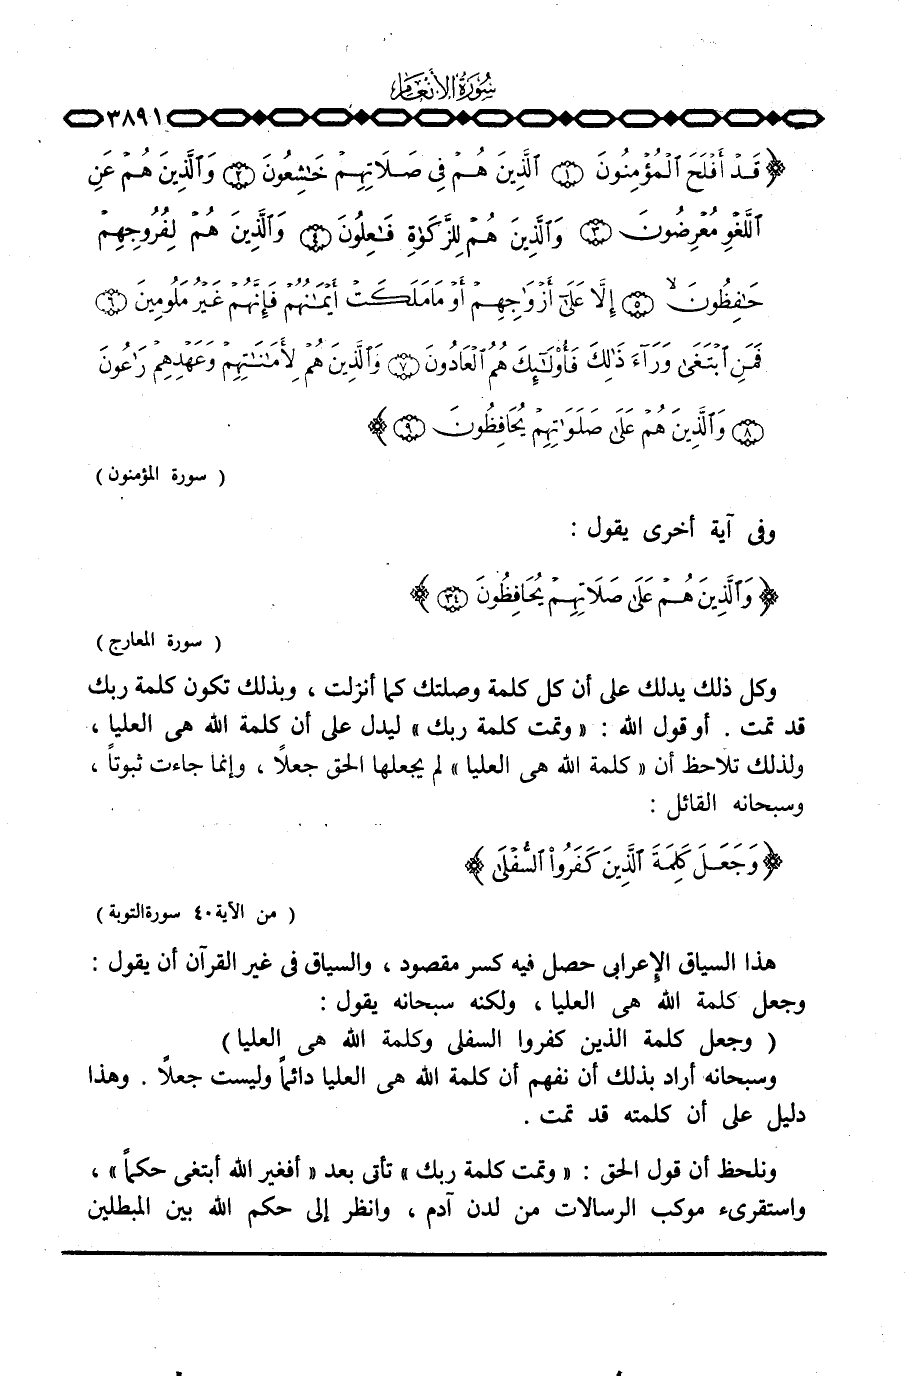 سورة الأنعام
٣٨٩١
﴿ قَدْ أَفْلَحَ ٱلْمُؤْمِنُونَ ۝١ ٱلَّذِينَ هُمْ فِى صَلَاتِهِمْ خَٰشِعُونَ ۝٢ وَٱلَّذِينَ هُمْ عَنِ
ٱللَّغْوِ مُعْرِضُونَ ۝٣ وَٱلَّذِينَ هُمْ لِلزَّكَوٰةِ فَٰعِلُونَ ۝٤ وَٱلَّذِينَ هُمْ لِفُرُوجِهِمْ
حَٰفِظُونَ ۙ ۝٥ إِلَّا عَلَىٰٓ أَزْوَٰجِهِمْ أَوْ مَا مَلَكَتْ أَيْمَٰنُهُمْ فَإِنَّهُمْ غَيْرُ مَلُومِينَ ۝٦
فَمَنِ ٱبْتَغَىٰ وَرَآءَ ذَٰلِكَ فَأُوْلَٰٓئِكَ هُمُ ٱلْعَادُونَ ۝٧ وَٱلَّذِينَ هُمْ لِأَمَٰنَٰتِهِمْ وَعَهْدِهِمْ رَٰعُونَ
۝٨ وَٱلَّذِينَ هُمْ عَلَىٰ صَلَوَٰتِهِمْ يُحَافِظُونَ ۝٩ ﴾
( سورة المؤمنون )
وفى آية أخرى يقول :
﴿ وَٱلَّذِينَ هُمْ عَلَىٰ صَلَاتِهِمْ يُحَافِظُونَ ۝٣٤ ﴾
( سورة المعارج )
وكل ذلك يدلك على أن كل كلمة وصلتك كما أنزلت ، وبذلك تكون كلمة ربك
قد تمت . أو قول الله : « وتمت كلمة ربك » ليدل على أن كلمة الله هى العليا ،
ولذلك تلاحظ أن « كلمة الله هى العليا » لم يجعلها الحق جعلاً ، وإنما جاءت ثبوتاً ،
وسبحانه القائل :
﴿ وَجَعَلَ كَلِمَةَ ٱلَّذِينَ كَفَرُواْ ٱلسُّفْلَىٰ ﴾
( من الآية ٤٠ سورة التوبة )
هذا السياق الإعرابى حصل فيه كسر مقصود ، والسياق فى غير القرآن أن يقول :
وجعل كلمة الله هى العليا ، ولكنه سبحانه يقول :
( وجعل كلمة الذين كفروا السفلى وكلمة الله هى العليا )
وسبحانه أراد بذلك أن نفهم أن كلمة الله هى العليا دائماً وليست جعلاً . وهذا
دليل على أن كلمته قد تمت .
ونلحظ أن قول الحق : « وتمت كلمة ربك » تأتى بعد « أفغير الله أبتغى حكماً » ،
واستقرىء موكب الرسالات من لدن آدم ، وانظر إلى حكم الله بين المبطلين